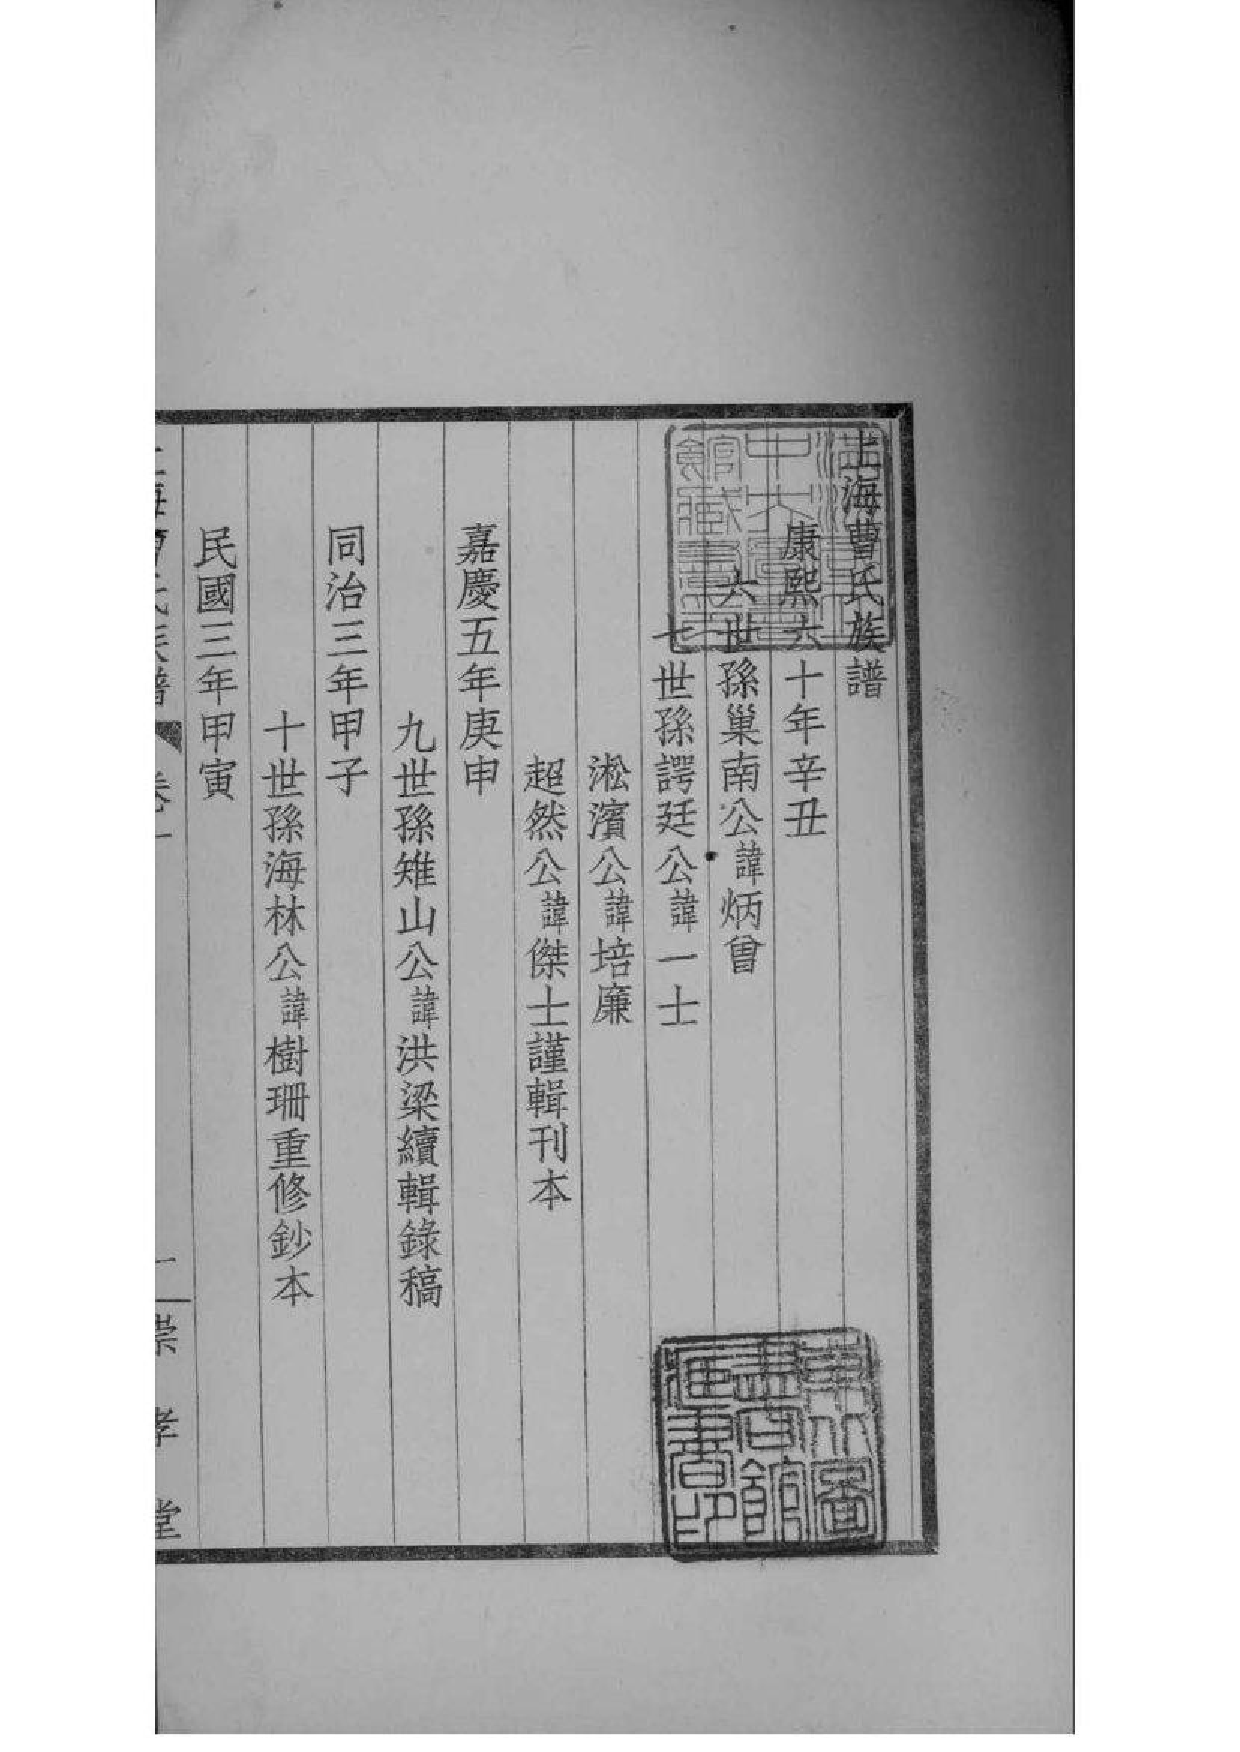 上海曹氏族譜
康熙六十年辛丑
六世孫巢南公諱炳曾
七世孫諤廷公諱一士
淞濱公諱培廉
超然公諱傑士謹輯刊本
嘉慶五年庚申
九世孫雉山公諱洪梁續輯錄稿
同治三年甲子
十世孫海林公諱樹珊重修鈔本
民國三年甲寅
上海曹氏族譜 卷一 一 崇孝堂
東北圖書館藏書印